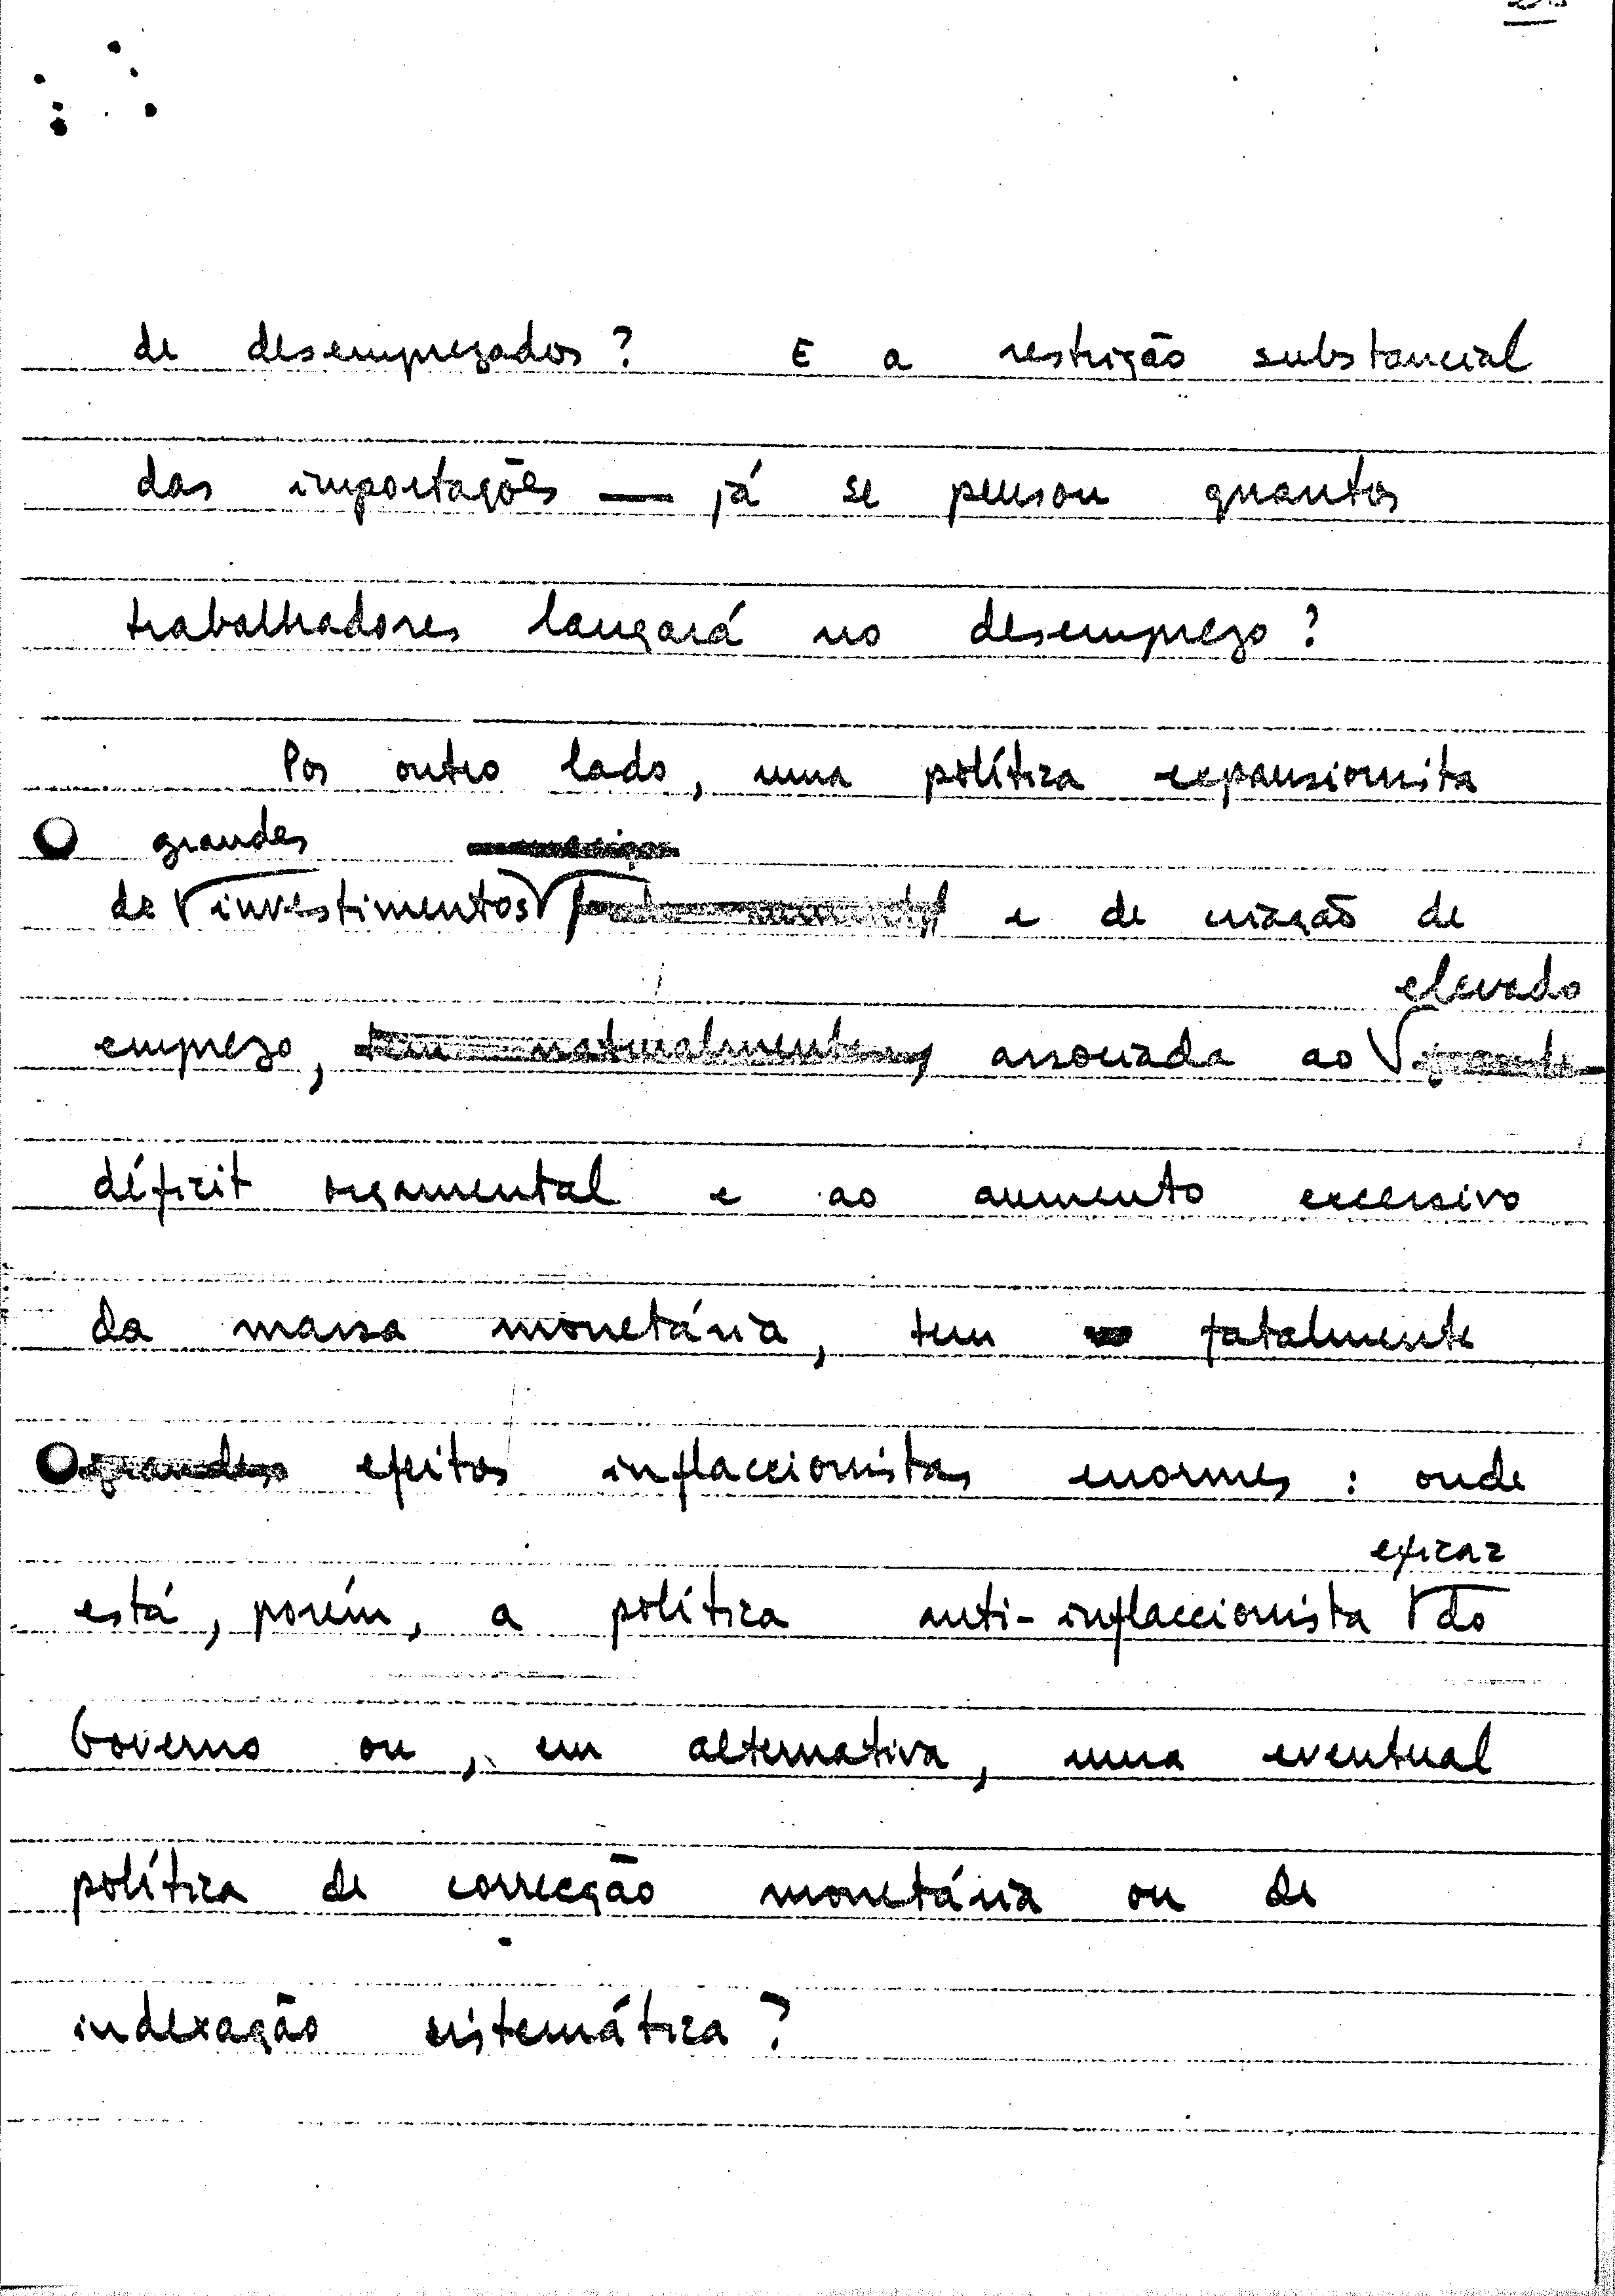 de desempregados? E a restrição substancial
das importações — já se pensou quantos
trabalhadores lançará no desemprego?
Por outro lado, uma política expansionista
grandes
de investimentos e de criação de
elevado
emprego, tem naturalmente associada ao grande
déficit orçamental e ao aumento excessivo
da massa monetária, tem fatalmente
grandes efeitos inflaccionistas enormes : onde
eficaz
está, porém, a política anti-inflaccionista do
Governo ou, em alternativa, uma eventual
política de correcção monetária ou de
indexação sistemática?